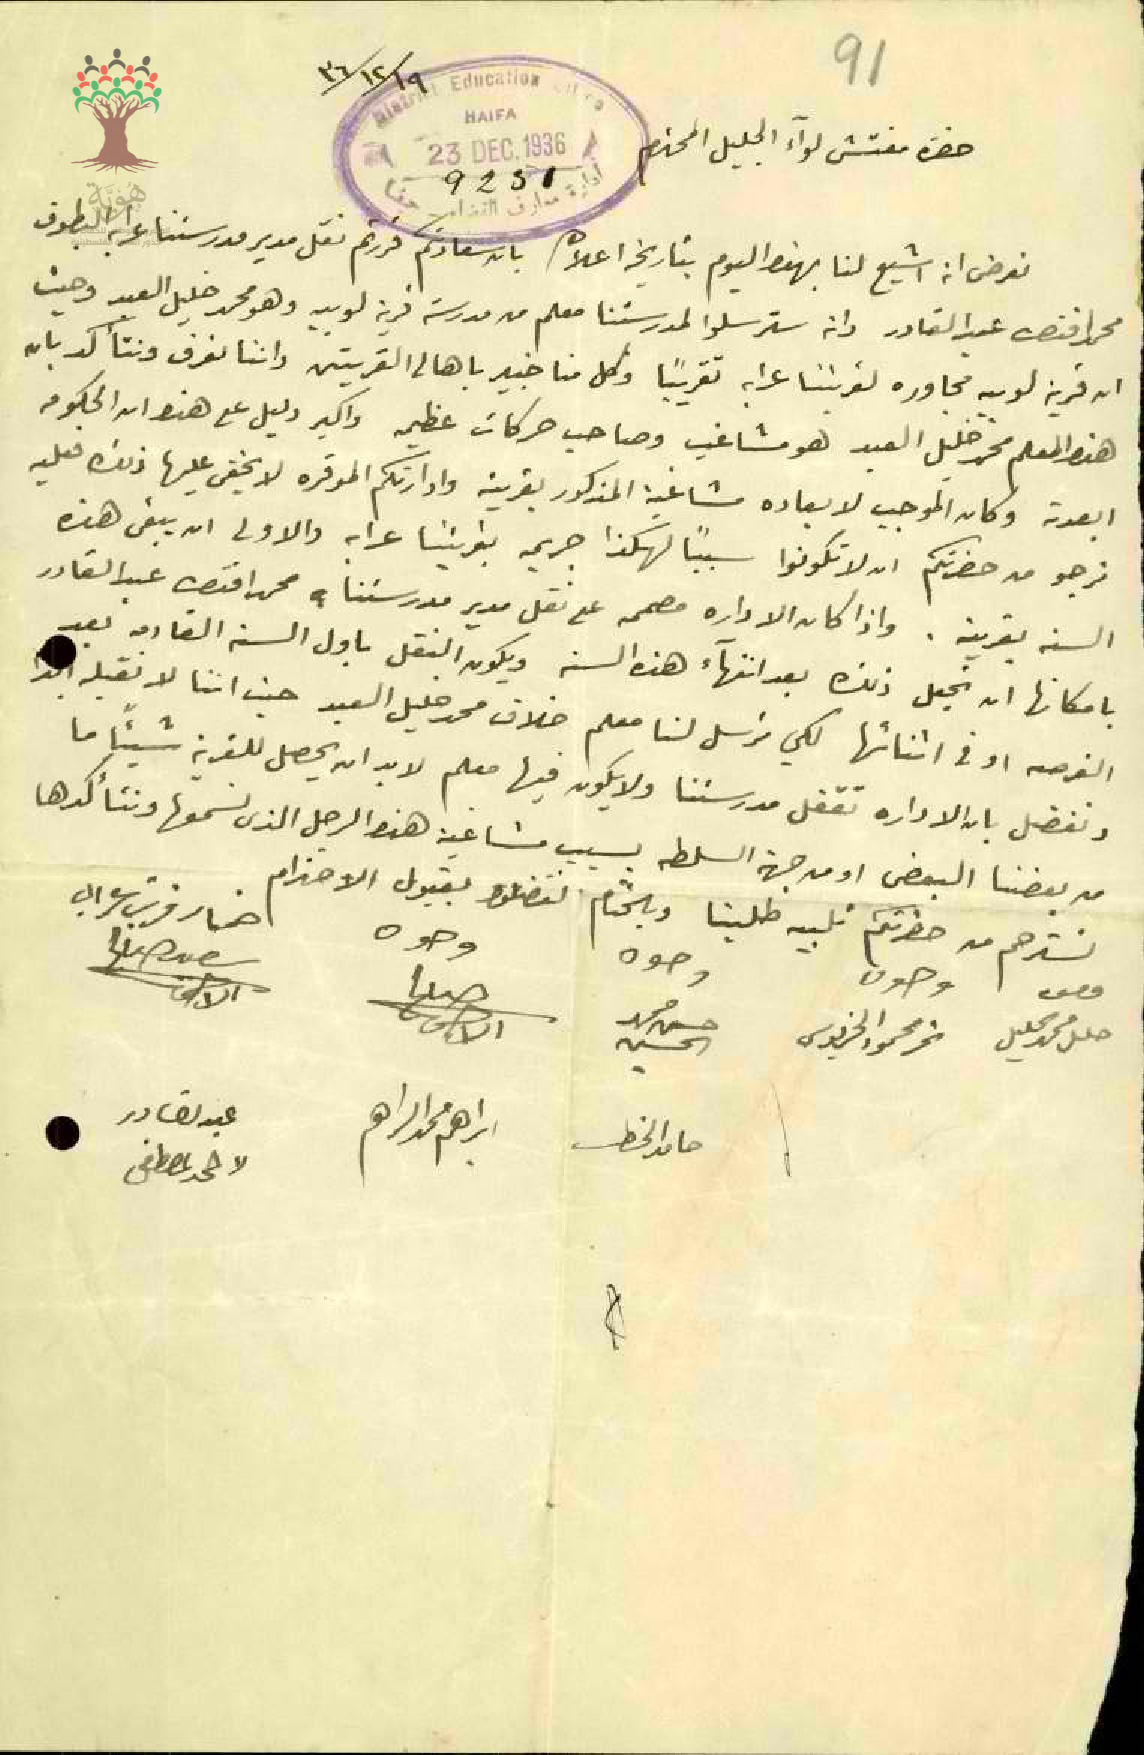 91
١٩/١٢/٣٦
District Education Office
HAIFA
23 DEC. 1936
9251
ادارة معارف اللواء حيفا
هوية
حضرة مفتش لوآء الجليل المحترم
نعرض انه اشيع لنا بهذا اليوم بتاريخ اعلاه بان سعادتكم قررتم نقل مدير مدرستنا عرابه البطوف
محمد افندي عبد القادر وانه سترسلوا لمدرستنا معلم من مدرسة قرية لوبيه وهو محمد خليل العبد وحيث
ان قرية لوبيه مجاوره لقريتنا عرابه تقريبًا وكل منا خبير باهالي القريتين واننا نعرف ونتأكد بان
هذا المعلم محمد خليل العبد هو مشاغب وصاحب حركات عظيمه واكبر دليل على هذا ان الحكومه
ابعدته وكان الموجب لابعاده مشاغبة المذكور بقريته وادارتكم الموقره لا يخفى عليها ذلك فعليه
نرجو من حضرتكم ان لا تكونوا سببًا لهكذا جريمه بقريتنا عرابه والاولى ان يبقى هذه
السنه بقريته . واذا كان الاداره مصممه على نقل مدير مدرستنا محمد افندي عبد القادر
بامكانها ان تجعل ذلك بعد انتهآء هذه السنه ويكون النقل باول السنه القادمه بعد
الفرصه او في اثنائها لكي نرسل لنا معلم خلاف محمد خليل العبد حيث اننا لا نقبله ابدًا
ونفضل بان الاداره تقفل مدرستنا ولا يكون فيها معلم لا بد ان يحصل للقرية شيئًا ما
من بعضنا البعض او من جهة السلطه بسبب مشاغبة هذا الرجل الذي نسمعها ونتأكدها
نسترحم من حضرتكم تلبيه طلبنا وبالختام تفضلوا بقبول الاحترام
مختار قرية عرابه
وجوه
وجوه
وجوه
محمد محمود
حسن محمد
الحسين
ابراهيم محمد ابراهيم
عبد القادر